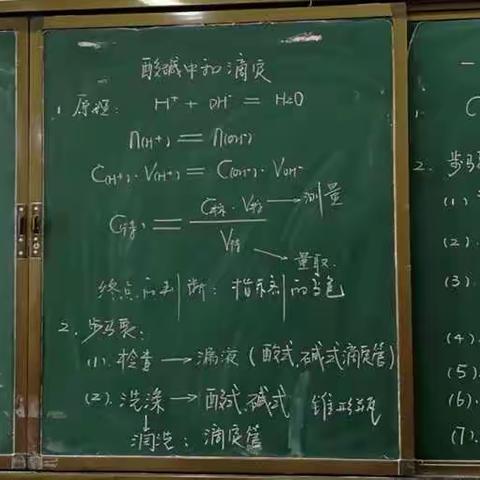 酸碱中和滴定
1. 原理: H⁺ + OH⁻ = H₂O
n(H⁺) = n(OH⁻)
C(H⁺)·V(H⁺) = C(OH⁻)·V OH⁻
C(待) = C标·V标 / V待
→测量
→量取
终点的判断: 指示剂的变色
2. 步骤:
(1). 检查 → 漏液 (酸式,碱式滴定管)
(2). 洗涤 → 酸式,碱式 锥形瓶
↓
润洗: 滴定管
一
1. C
2. 步骤
(1)
(2).
(3).
(4).
(5).
(6).
(7).